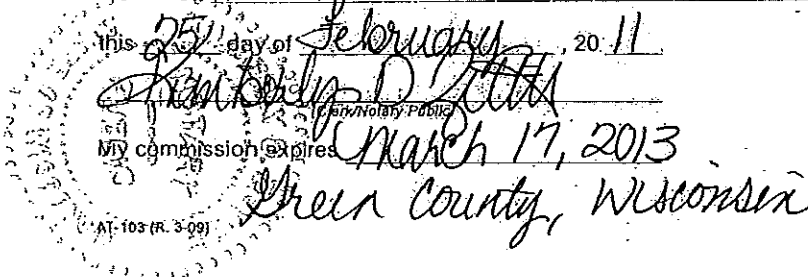 this 25 day of February, 20 11
Kimberly D
Clerk/Notary Public
My commission expires March 17, 2013
Green County, Wisconsin
AT-103 (R. 3-09)